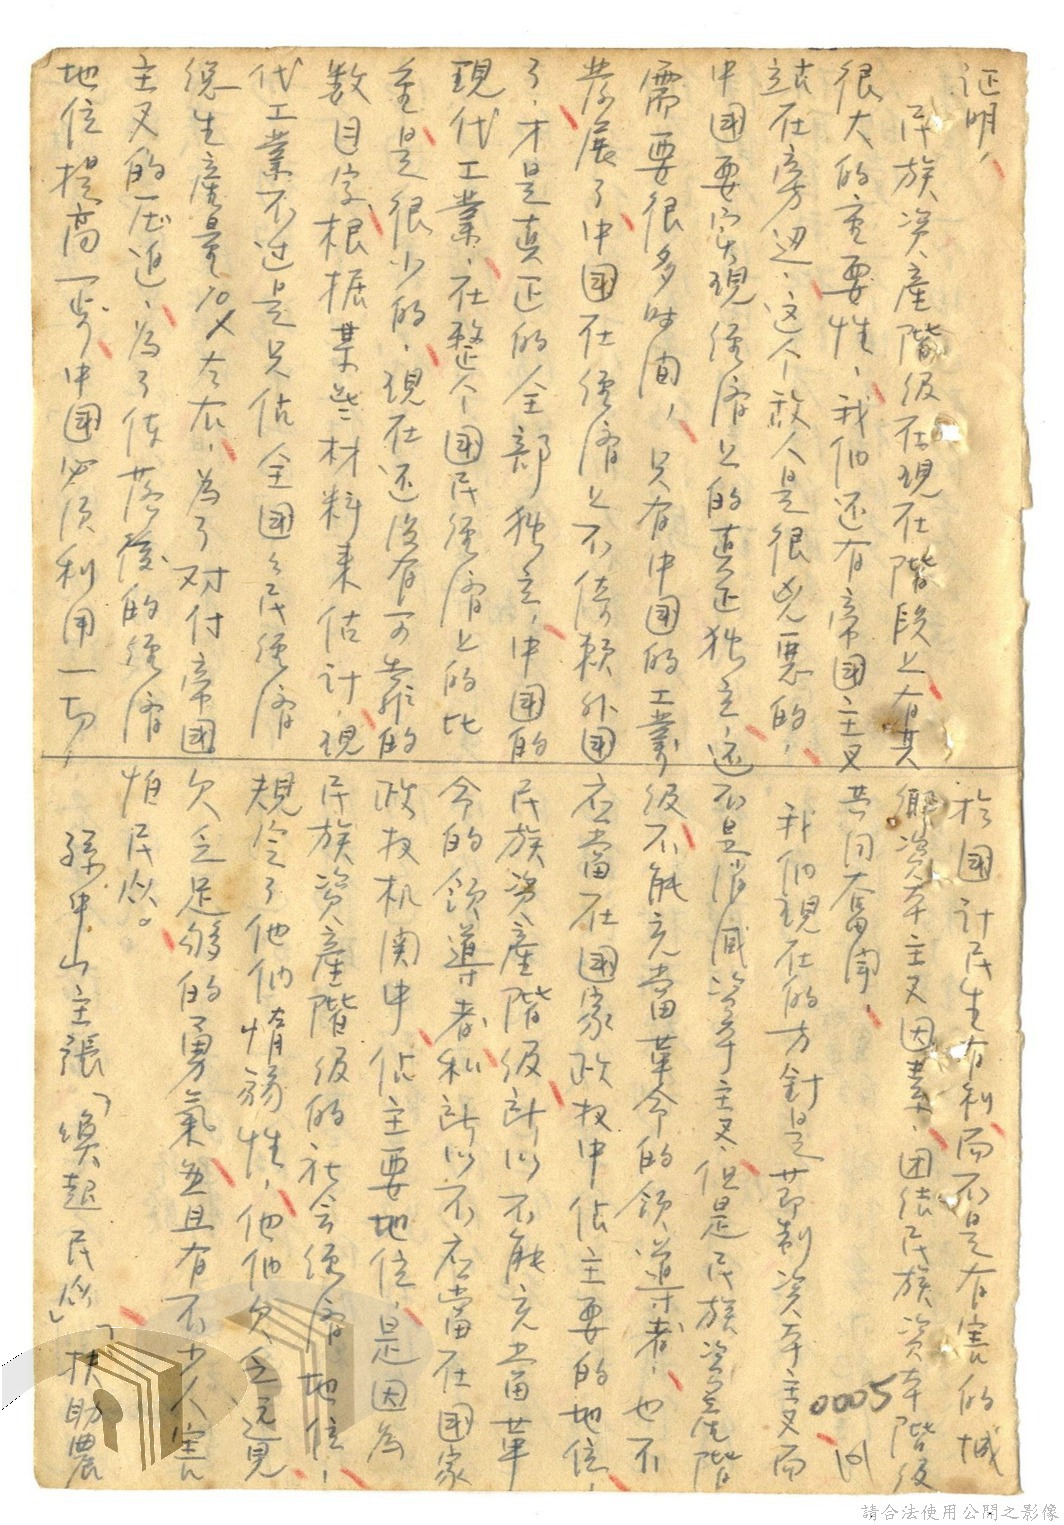 证明，
民族资産階級在現在階段上有其
很大的重要性，我们还有帝国主义
站在旁边，这个敌人是很兇悪的，
中國要实現经濟上的真正独立，还
需要很多时间，只有中国的工業
发展了中國在经濟上不倚赖外国
了，才是真正的全部独立，中國的
現代工業，在整个國民经濟上的比
重是很少的，現在还没有可靠的
数目字根据某些材料来估计，現
代工業不过是只佔全國々民经濟
总生産量10%左右，為了对付帝國
主义的压迫，為了使落後的经濟
地位提高一步，中國必须利用一切，
於國计民生有利而不是有害的城
鄉资本主义因素，团结民族资本階级
共同奋闘，
我们現在的方針是节制资本主义而
不是消滅资本主义，但是民族资産階
级不能充當革命的领導者，也不
应當在國家政权中佔主要的地位，
民族资産階级所以不能充當革
命的领導者和所以不应當在國家
政权机関中佔主要地位，是因為
民族资産階级的社会经濟地位，
規定了他们惰弱性，他们欠乏远見
欠乏足够的勇氣並且有不少人害
怕民众。
孫中山主張「喚起民众」「扶助農
0005
请合法使用公開之影像